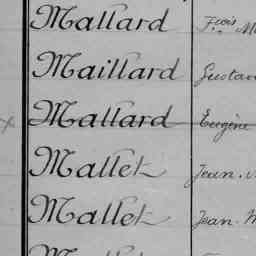 Mallard Fcois M
Maillard Gustav
Mallard Eugène
Mallet Jean.
Mallet Jean. M